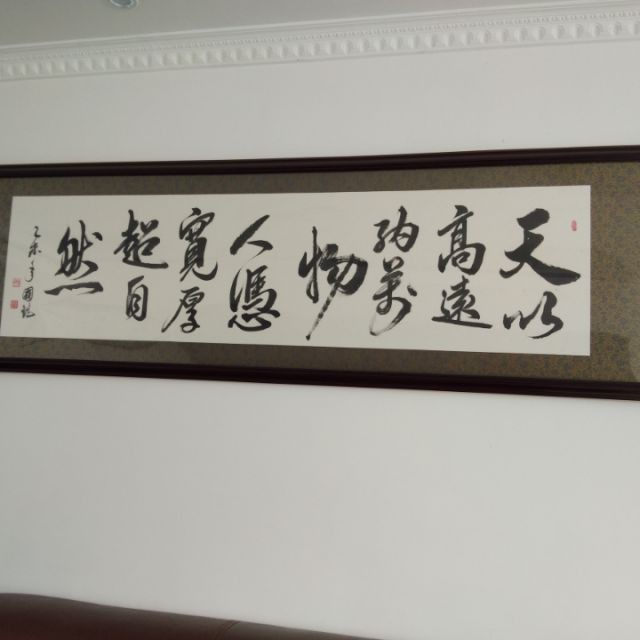 天以
高遠
納萬
物
人憑
寬厚
超自
然
乙未